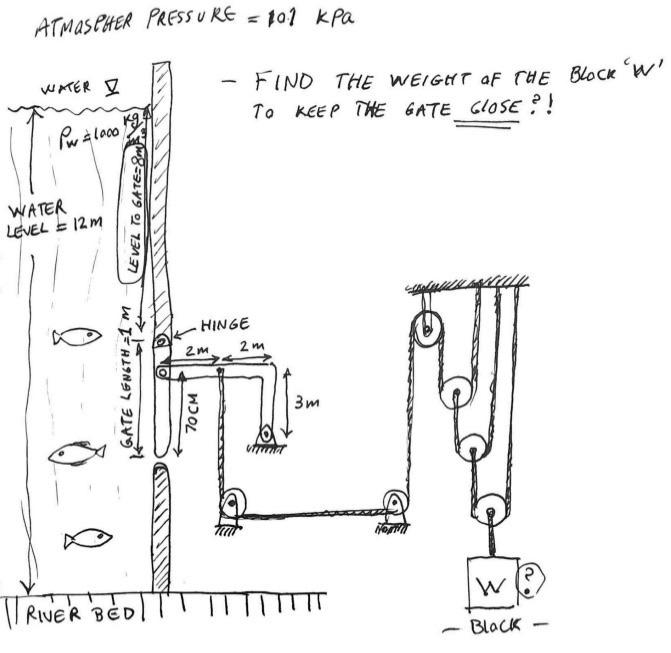 ATMOSPHER PRESSURE = 101 KPa
- FIND THE WEIGHT OF THE BLOCK 'W'
TO KEEP THE GATE CLOSE?!
WATER
ρw = 1000 kg/m³
LEVEL TO GATE=8m
WATER
LEVEL = 12m
HINGE
2m
2m
GATE LENGTH=1 m
70CM
3m
W
?
- BLOCK -
RIVER BED